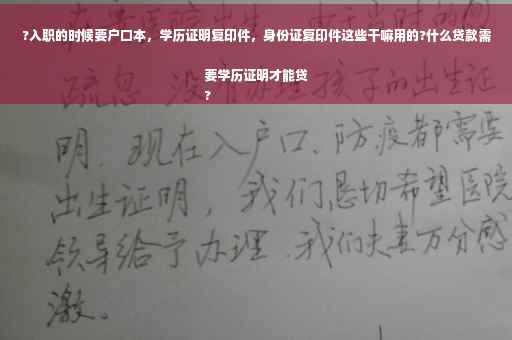 ?入职的时候要户口本，学历证明复印件，身份证复印件这些干嘛用的?什么贷款需
要学历证明才能贷
?
疏忽，没有办理孩子的出生证
明．现在入户口、防疫都需要
出生证明，我们恳切希望医院
领导给予办理．我们夫妻万分感
激．